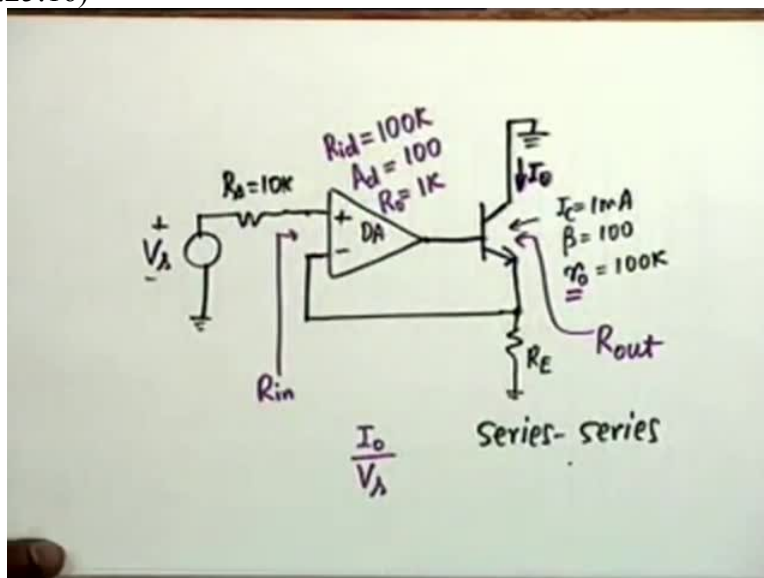 Rid = 100K
Ad = 100
Ro = 1K
Rs = 10K
+
Vs
-
+
DA
-
Io
Ic = 1mA
β = 100
ro = 100K
Rout
RE
Rin
Io
Vs
series-series